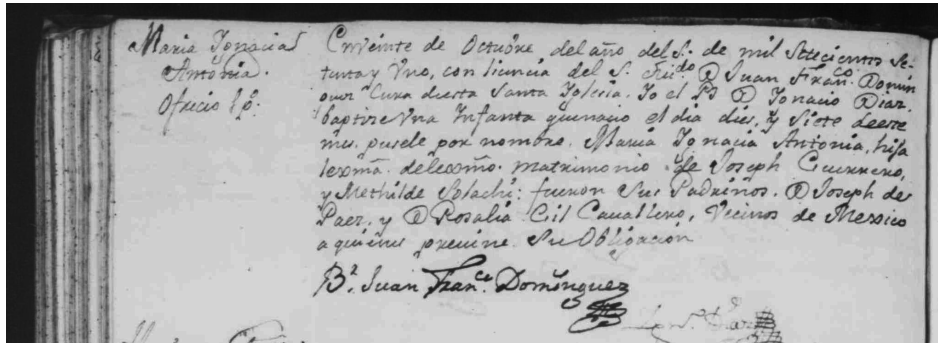 Maria Ygnacia
Antonia.
Oficio 1º.
En veinte de Octubre del año del S. de mil Setecientos Se-
tenta y Uno, con licencia del S. D Juan Franco. Domin
guez Cura desta Santa Iglesia. Yo el Br D Ygnacio Diaz.
baptize Vna Infanta que nacio el dia diez, y Siete deeste
mes. pusele por nombre. Maria Ygnacia Antonia, hija
lexma. delexmo. matrimonio de Joseph Guerrero,
y Methilde fueron Sus Padrinos. D Joseph de
Paez, y D Rosalia Cil Cavallero, Vecinos de Mexico
a quienes previne Su Obligacion
Br. Juan Franco. Dominguez
Diaz